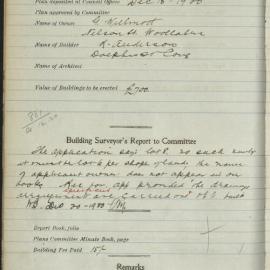 Plan deposited at Council Office Dec 18 - 1900
Plan approved by Committee
Name of Owner G. Wilmott
Nelson St Woollahra
Name of Builder R. Anderson
Name of Architect
Value of Buildings to be erected £700
Building Surveyor's Report to Committee
The application says Lot 8. no such
it must be Lot 6 per shape of land the name
of applicant owner does not appear on our
books. for app provided the drainage
arrangement are carried out
Dec 20 - 1900
Report Book, folio
Plans Committee Minute Book, page
Building Fee Paid 15/-
Remarks